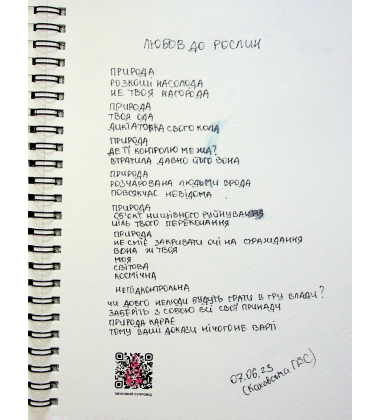 ЛЮБОВ ДО РОСЛИН
ПРИРОДА
РОЗКОШІ НАСОЛОДА
НЕ ТВОЯ НАГОРОДА
ПРИРОДА
ТВОЯ ОДА
ДИКТАТОРКА СВОГО КОЛА
ПРИРОДА
ДЕ ЇЇ КОНТРОЛЮ МЕЖА?
ВТРАТИЛА ДАВНО ЙОГО ВОНА
ПРИРОДА
РОЗЧАРОВАНА ЛЮДЬМИ ВРОДА
ПОВСЯКЧАС НЕВІДОМА
ПРИРОДА
ОБ'ЄКТ НИЩІВНОГО РУЙНУВАННЯ
ЦІЛЬ ТВОГО ПЕРЕКОНАННЯ
ПРИРОДА
НЕ СМІЄ ЗАКРИВАТИ ОЧІ НА СТРАЖДАННЯ
ВОНА Ж ТВОЯ
МОЯ
СВІТОВА
КОСМІЧНА
НЕПІДКОНТРОЛЬНА
ЧИ ДОВГО НЕЛЮДИ БУДУТЬ ГРАТИ В ГРУ ВЛАДИ?
ЗАБЕРІТЬ З СОБОЮ ВСІ СВОЇ ПРИНАДИ
ПРИРОДА КАРАЄ
ТОМУ ВАШІ ДОКАЗИ НІЧОГО НЕ ВАРТІ
07.06.23
(Каховська ГЕС)
ЗВУКОВИЙ СУПРОВІД